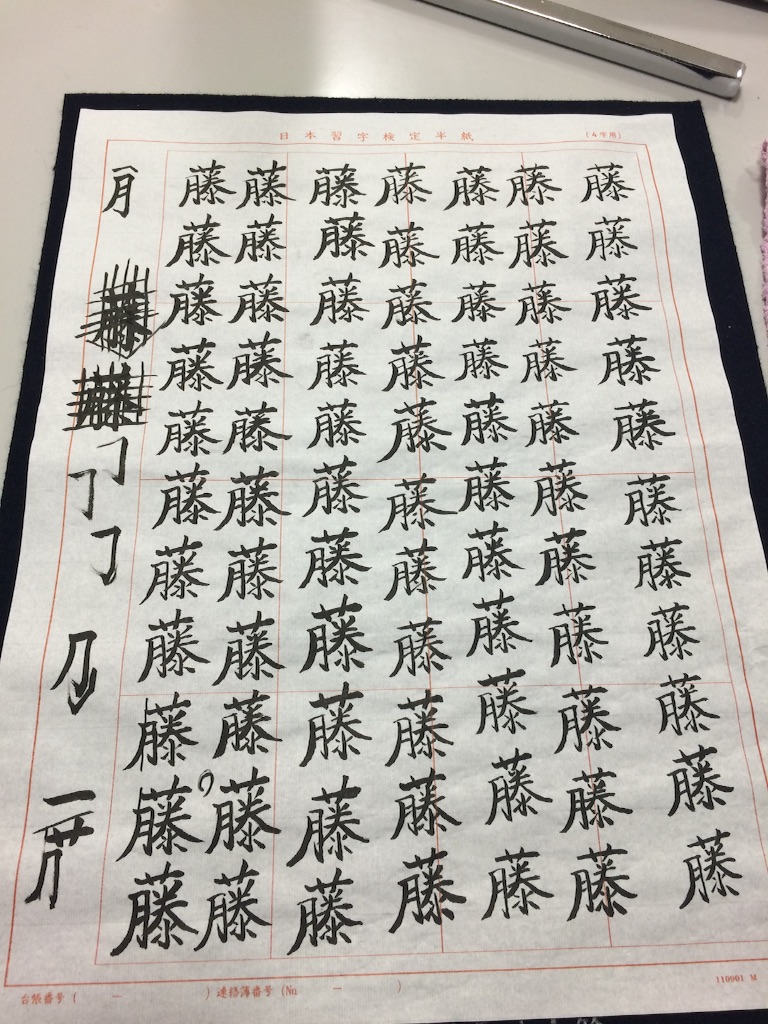 日本習字検定半紙
(4字用)
藤藤藤藤藤藤藤藤藤藤藤
藤藤藤藤藤藤藤藤藤藤藤
藤藤藤藤藤藤藤藤藤藤藤
藤藤藤藤藤藤藤藤藤藤藤
藤藤藤藤藤藤藤藤藤藤藤
藤藤藤藤藤藤藤藤藤藤藤
藤藤藤藤藤藤藤藤藤藤藤
月
台帳番号 ( － ) 連絡簿番号 (No. － )
110901 M